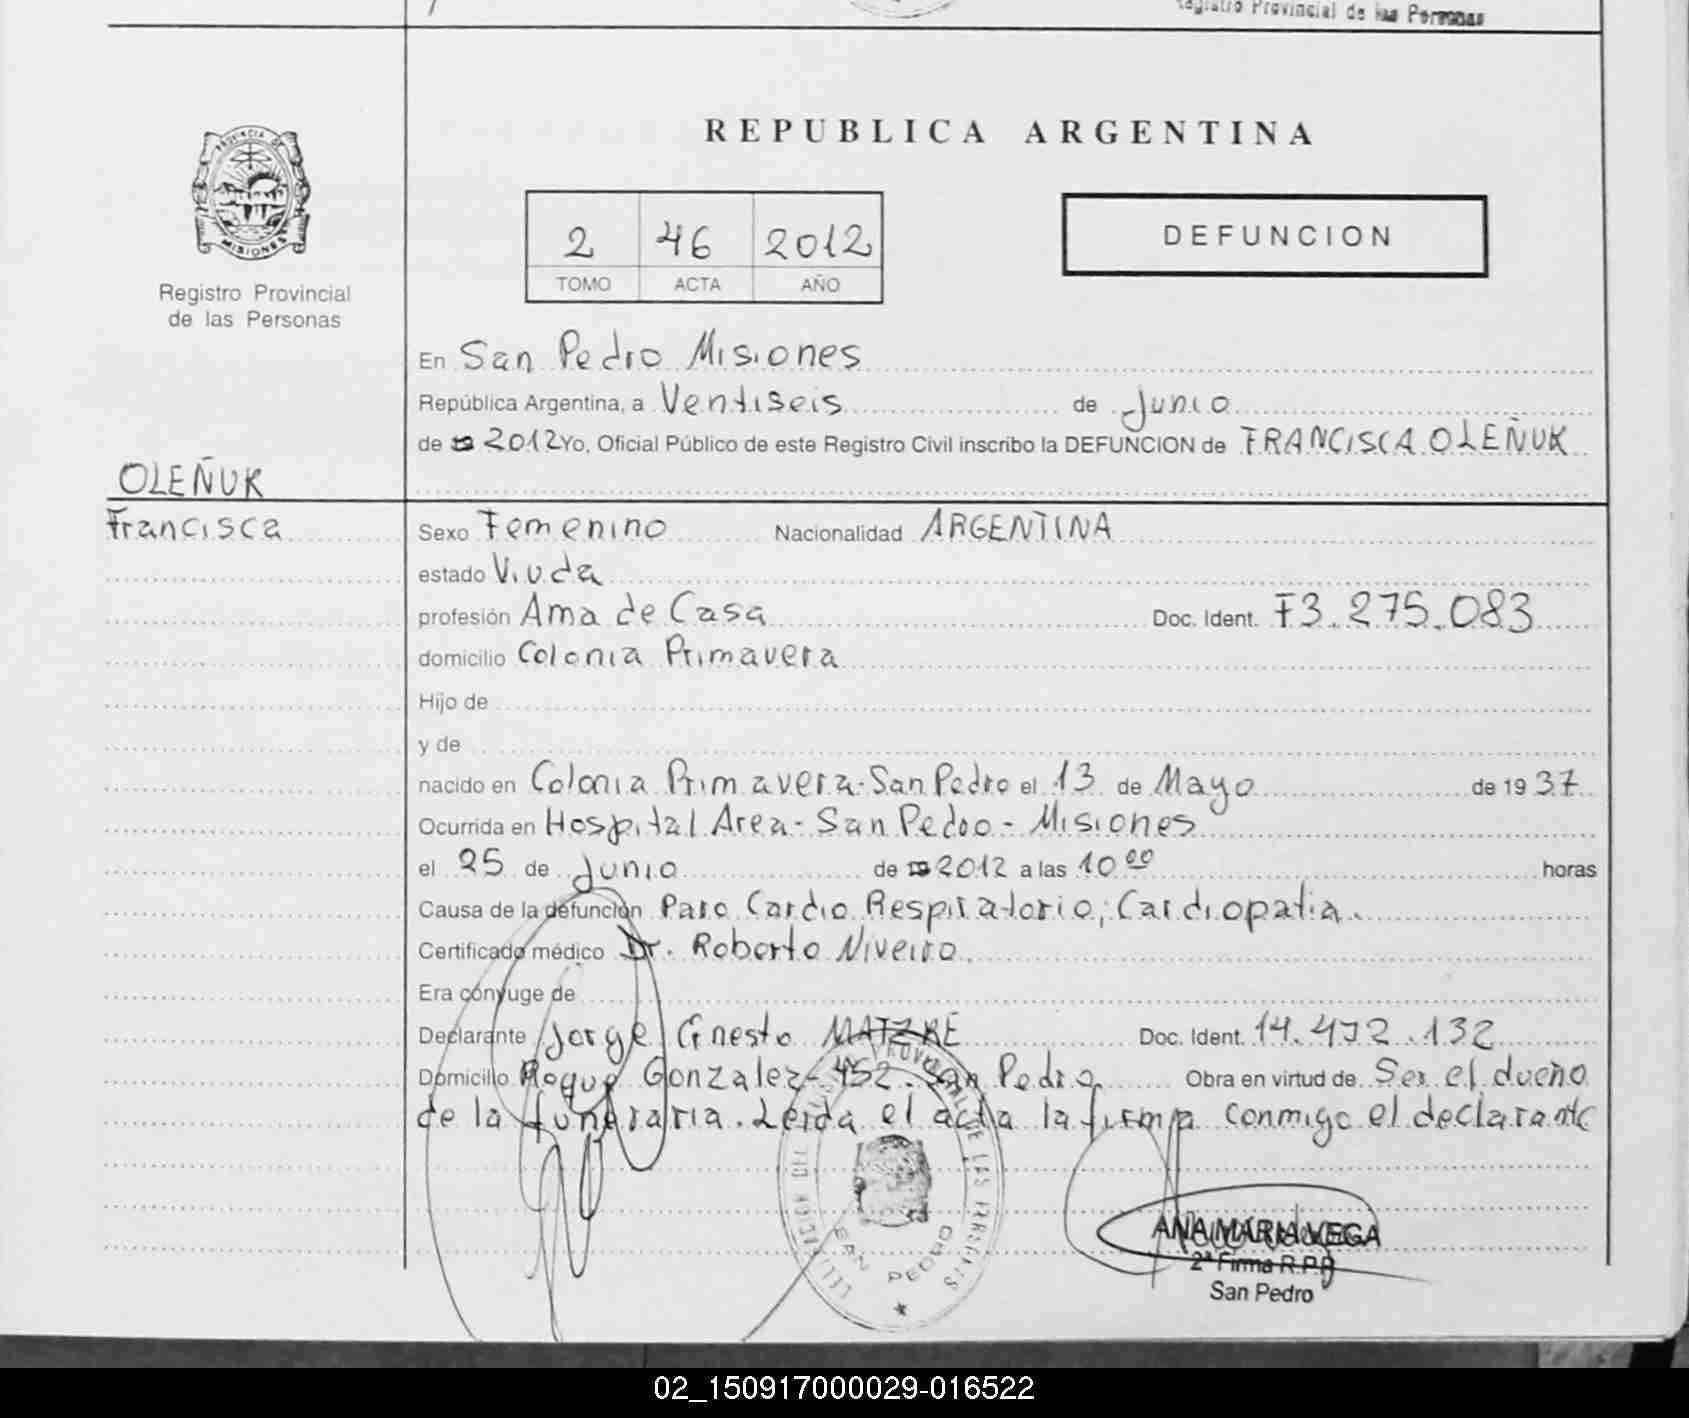 Registro Provincial de las Personas
REPUBLICA ARGENTINA
PROVINCIA DE
MISIONES
Registro Provincial
de las Personas
2 46 2012
TOMO ACTA AÑO
DEFUNCION
En San Pedro Misiones
República Argentina, a Ventiseis de Junio
de 2012 Yo, Oficial Público de este Registro Civil inscribo la DEFUNCION de FRANCISCA OLEÑUK
OLEÑUK
Francisca
Sexo Femenino Nacionalidad ARGENTINA
estado Viuda
profesión Ama de Casa Doc. Ident. F3.275.083
domicilio Colonia Primavera
Hijo de
y de
nacido en Colonia Primavera-San Pedro el 13 de Mayo de 1937
Ocurrida en Hospital Area-San Pedro-Misiones
el 25 de Junio de 2012 a las 10 00 horas
Causa de la defunción Paro Cardio Respiratorio, Cardiopatia.
Certificado médico Dr. Roberto Niveiro.
Era cónyuge de
Declarante Jorge Ernesto Doc. Ident. 14.472.132
Domicilio Roque Gonzalez-452-San Pedro Obra en virtud de Ser el dueño
de la funeraria. Leida el acta la firma conmigo el declarante
PROVINCIAL DE LAS PERSONAS
SAN PEDRO
ANA MARIA VEGA
2ª Firma R.P.P.
San Pedro
02_150917000029-016522